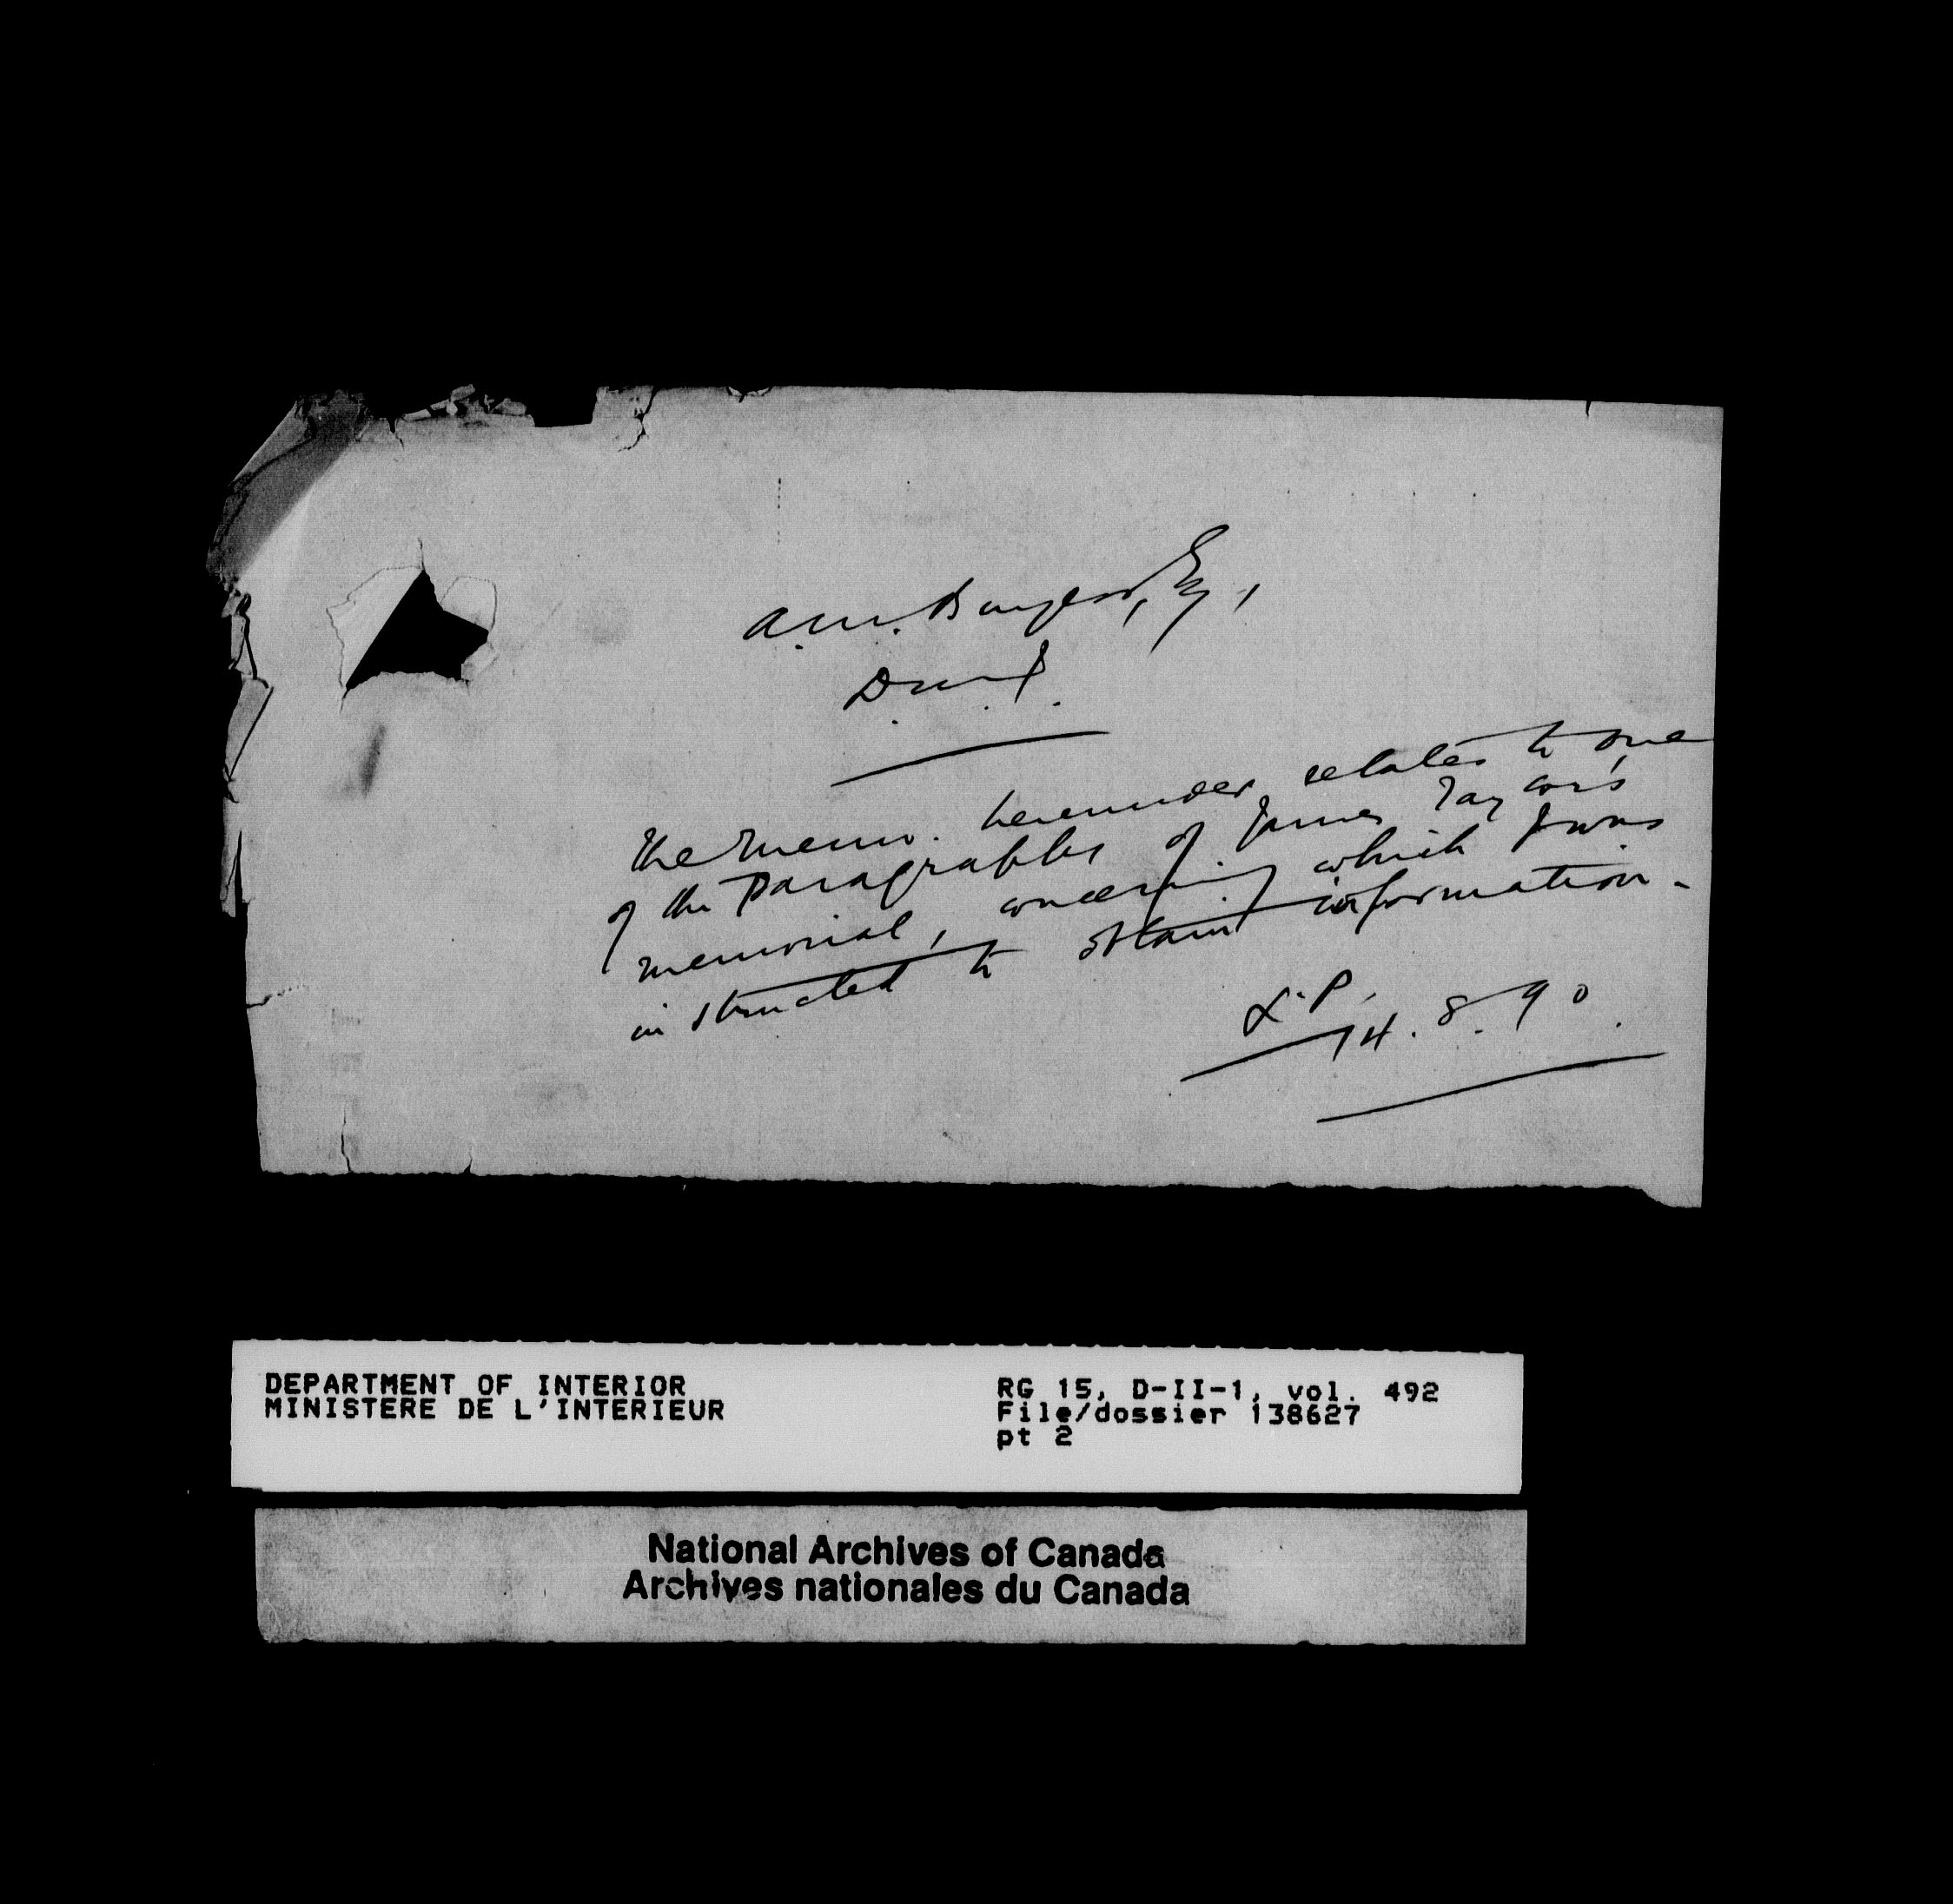 A.M. Burgess, Esq.,
D.M.I.
The memo. hereunder, relates to one
of the Paragraphs of James Taylor's
memorial, concerning which I was
instructed to obtain information.
L.P.
14.8.90.
DEPARTMENT OF INTERIOR
MINISTERE DE L'INTERIEUR
RG 15, D-II-1, vol. 492
File/dossier 138627
pt 2
National Archives of Canada
Archives nationales du Canada